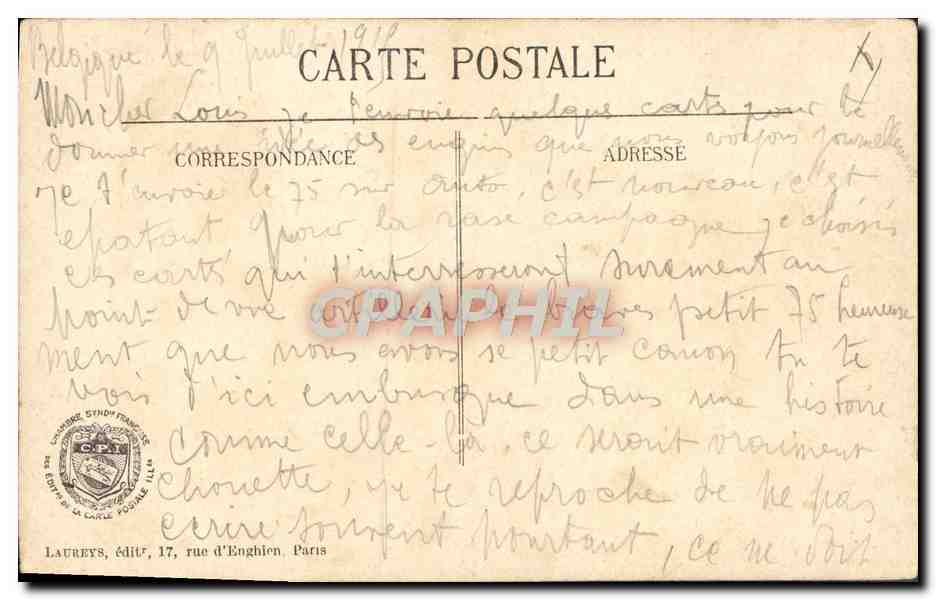 Belgique le 9 Juillet 191
CARTE POSTALE
Mon cher Louis je t'envoie quelque carts pour te
donner une idée des engins que nous voyons journelle
CORRESPONDANCE
ADRESSE
je t'envoie le 75 sur auto, c'est nouveau, c'est
epatant, pour la rase campagne je choisis
ces carts qui t'interresseront surement au
point de vue le braves petit 75 heureuse
CPAPHIL
ment que nous avons se petit canon tu te
vois d'ici embusque dans une histoire
comme celle-là, ce serait vraiment
chouette, je te reproche de ne pas
ecrire souvent pourtant, ce ne doit
CHAMBRE SYNDle FRANÇAISE
DES ÉDITrs DE LA CARTE POSTALE ILLée
C.P.I
LAUREYS, éditr, 17, rue d'Enghien, Paris